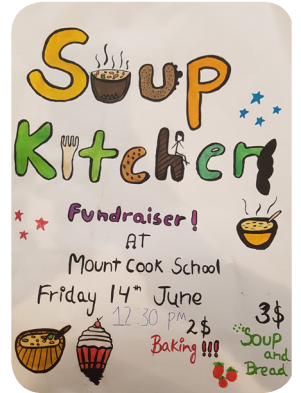 Soup
Kitchen
Fundraiser!
AT
Mount Cook School
Friday 14th June
12.30 pm
2$
Baking!!!
3$
Soup
and
Bread